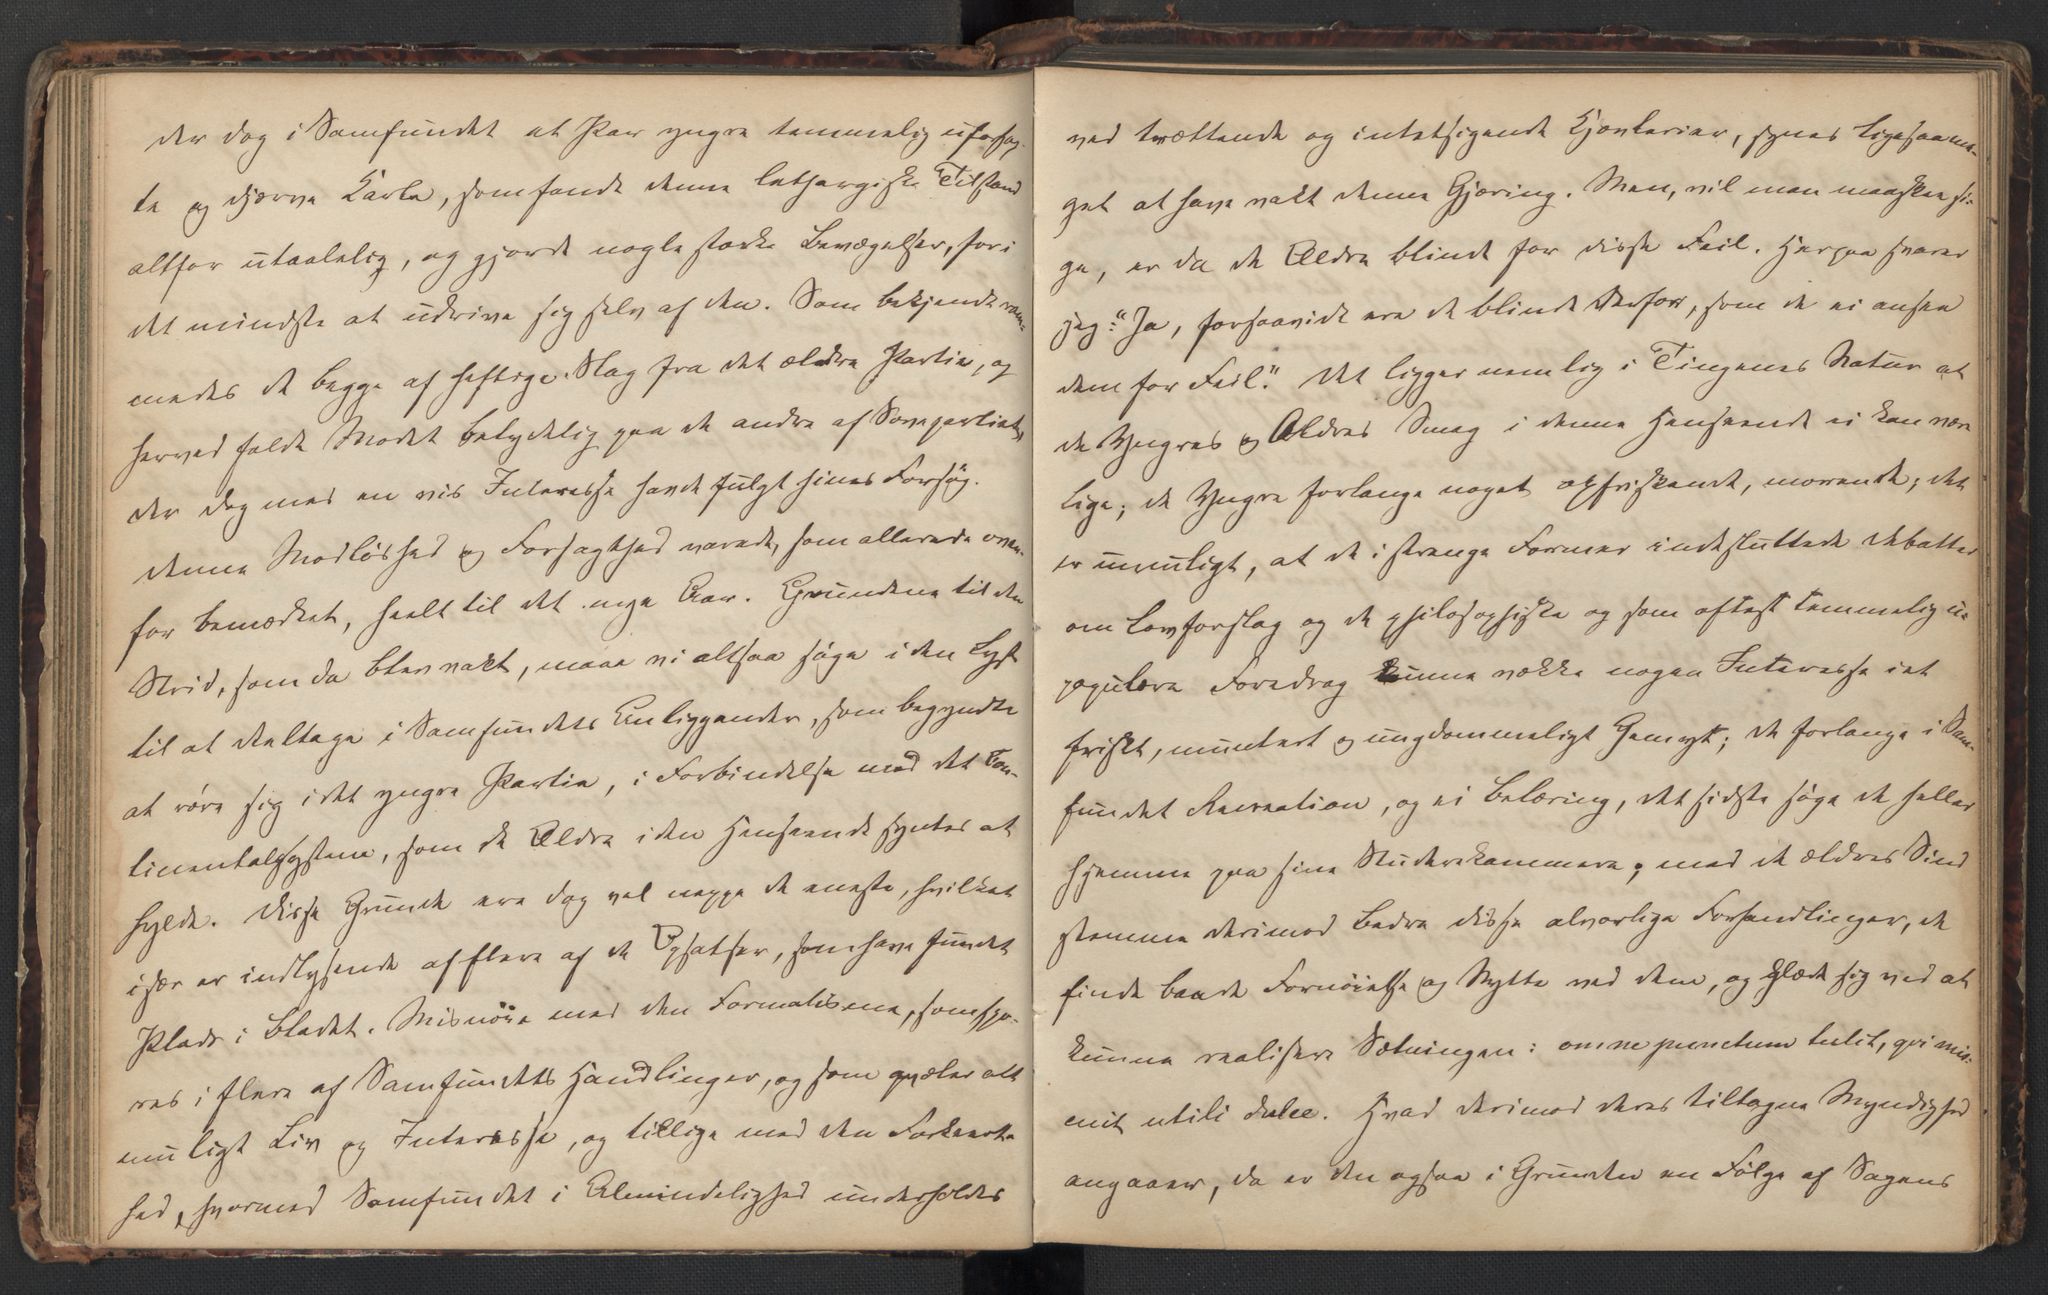 der dog i Samfundet et Par yngre temmelig uforsag-
te og djærve Karle, som fandt denne lethargiske Tilstand
altfor utaalelig, og gjorde nogle stærke Bevægelser, for i
det mindste at uddrive sig selv af den. Som bekjendt ram-
medes de begge af heftige Slag fra det ældre Partie, og
herved faldt Modet betydelig paa de andre af Sovepartiet,
der dog med en vis Interesse havde fulgt hines Forsøg.
Denne Modløshed og Forsagthed varede, som allerede oven-
for bemærket, heelt til det nye Aar. Grundene til den
Strid, som da blev vakt, maae vi altsaa søge i den Lyst
til at deeltage i Samfundets Anliggender, som begyndte
at røre sig i det yngre Partie, i Forbindelse med det Con-
tinentalsystem, som de Ældre i den Henseende syntes at
hylde. Disse Grunde ere dog vel neppe de eneste, hvilket
især er indlysende af flere af de Opsatser, som have fundet
Plads i Bladet. Misnøie med den Formalisme, som spo-
res i flere af Samfundets Handlinger, og som qvæler alt
muligt Liv og Interesse, og tillige med den Forkeert-
hed, hvormed Samfundet i Almindelighed underholdes
ved trættende og intetsigende Kjævlerier, synes ligesaame-
get at have vakt denne Gjæring. Men, vil man maaskee si-
ge, er da de Ældre blinde for disse Feil. Herpaa svarer
jeg: "Ja, forsaavidt ere de blinde derfor, som de ei ansee
dem for Feil". Det ligger nemlig i Tingenes Natur at
de Yngres og Ældres Smag i denne Henseende ei kan være
lige; de Yngre forlange noget opfriskende, morende; det
er umuligt, at de i strenge Former indesluttede Debatter
om Lovforslag og de philosophiske og som oftest temmelig u-
populære Foredrag kunne vække nogen Interesse i et
friskt, muntert og ungdommeligt Gemyt; de forlange i Sam-
fundet Recreation, og ei Belæring, det sidste søge de heller
hjemme paa sine Studerekammere; med de ældres Sind
stemme derimod bedre disse alvorlige Forhandlinger, de
finde baade Fornøielse og Nytte ved dem, og glæde sig ved at
kunne realisere Sætningen: omne punctum tulit, qvi mis-
cuit utili dulce. Hvad derimod deres tiltagne Myndighed
angaaer, da er den ogsaa i Grunden en Følge af Sagens